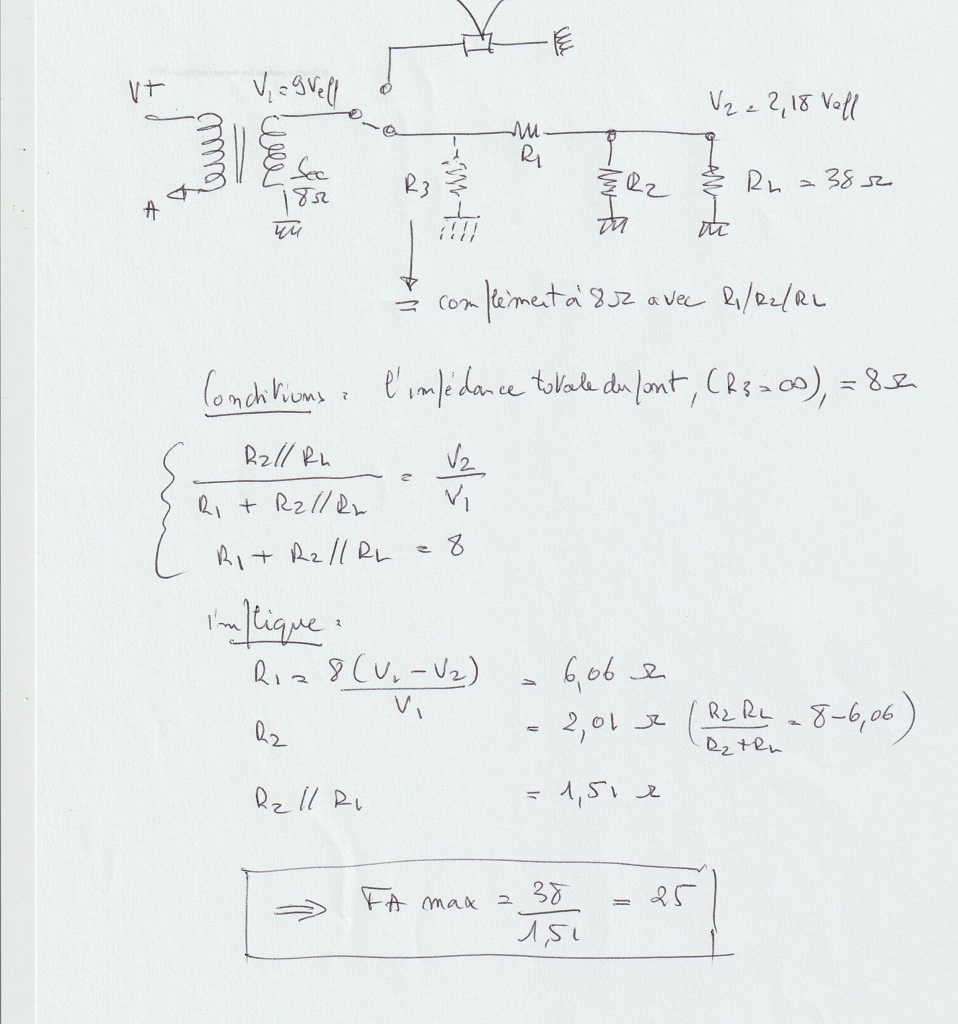 V+
V1 = 9Veff
V2 = 2,18 Veff
A
Sec
8Ω
R1
R3
R2
RL = 38 Ω
= complément à 8Ω avec R1/R2/RL
Conditions : l'impédance totale du pont, (R3 = ∞), = 8Ω
R2//RL / R1 + R2//RL = V2 / V1
R1 + R2//RL = 8
Implique :
R1 = 8(V1 - V2) / V1 = 6,06 Ω
R2 = 2,01 Ω (R2 RL / R2 + RL = 8-6,06)
R2 // R1 = 1,51 Ω
⇒ FA max = 38 / 1,51 = 25